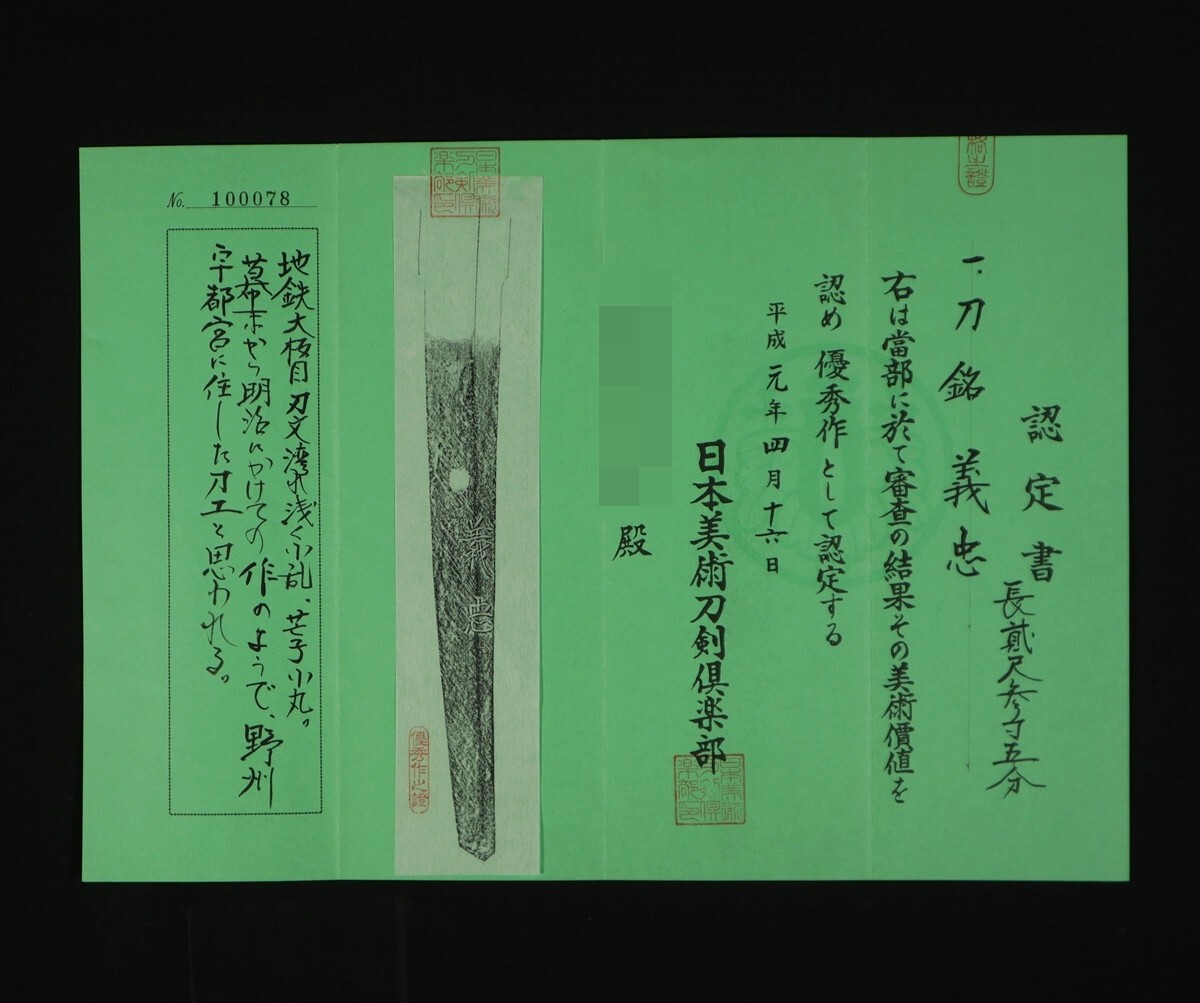 認定書
一.刀 銘 義忠
長貮尺参寸五分
右は當部に於て審査の結果その美術價値を
認め 優秀作 として認定する
平成 元年 四月 十六日
日本美術刀剣倶楽部
殿
義忠
優秀作之證
No. 100078
地鉄大板目刃文湾れ浅く小乱、芒子小丸。
幕末から明治にかけての作のようで、野州
宇都宮に住した刀工と思われる。